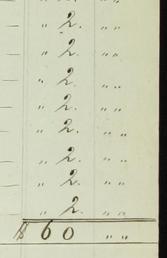 " 2. " "
" 2. " "
" 2. " "
" 2. " "
" 2. " "
" 2. " "
" 2. " "
" 2. " "
$ 60 " "